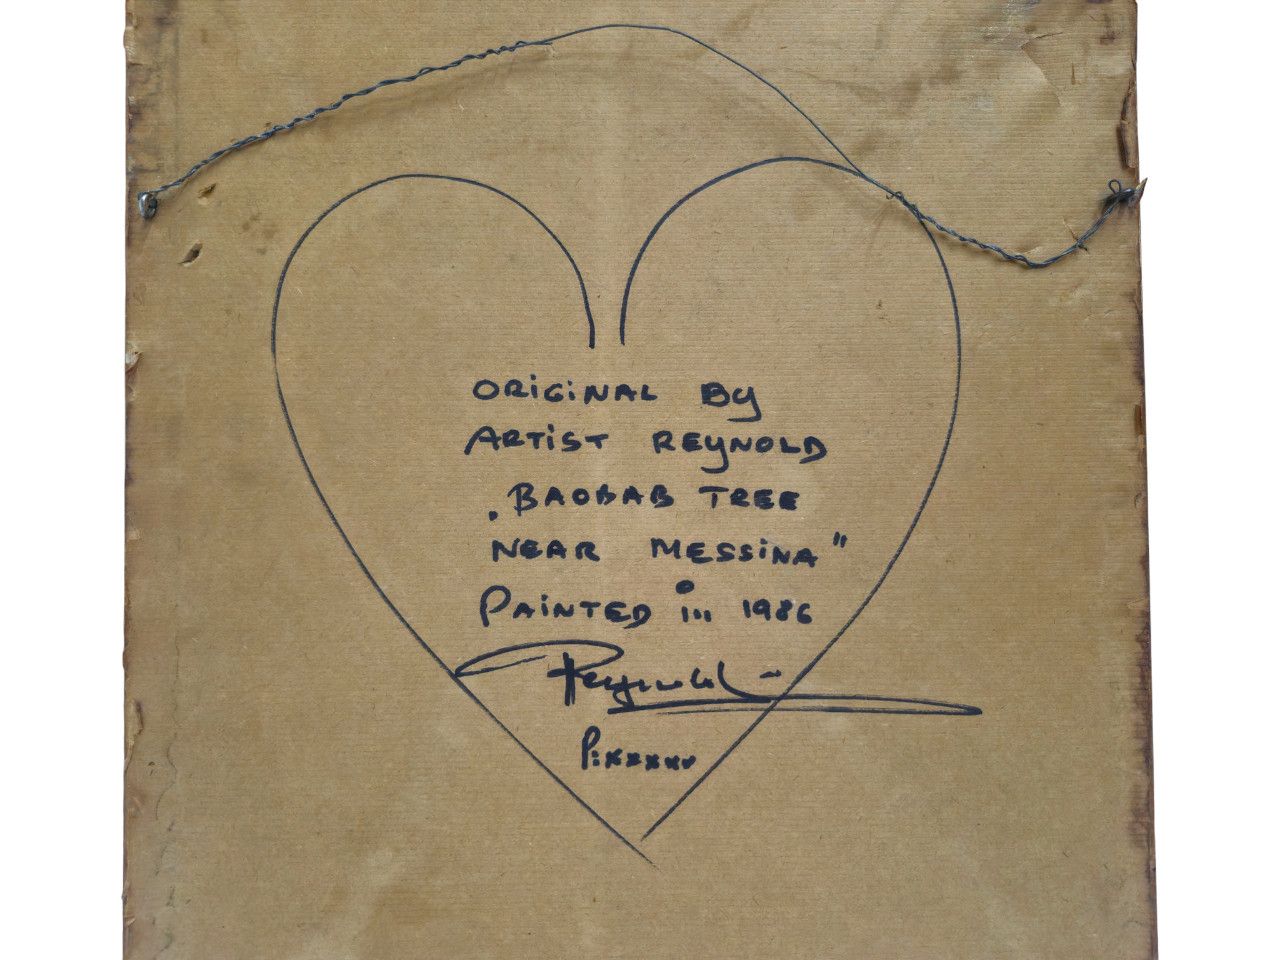 ORiGiNAL By
ARTiST REyNOLD
„BAOBAB TREE
NEAR MESSiNA”
PAiNTED in 1986
Reynold
P:xxxxxx